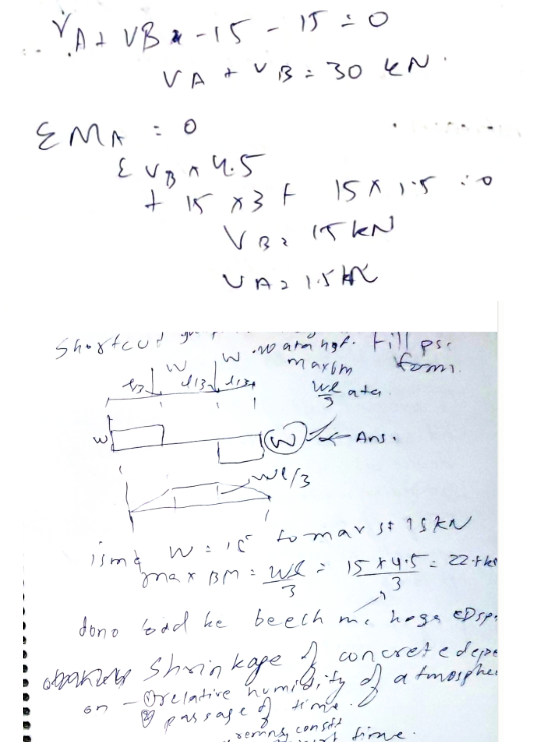 ∴ VA + VB - 15 - 15 = 0
VA + VB = 30 kN.
ΣMA = 0
Σ VB × 4.5
+ 15 × 3 + 15 × 1.5 = 0
VB = 15 kN
VA = 15 kN
Shortcut
W W
l/3 l/3 l/3
till ps.
form.
Wl
3
W W ← Ans.
Wl/3
isme W = 15 to max sf 15 kN
max BM = Wl/3 = 15 × 4.5/3 = 22.5 kN
dono load ke beech me hoga
Shrinkage of concrete depe
on - ① relative humidity of atmosphe
② passage of time.
time.